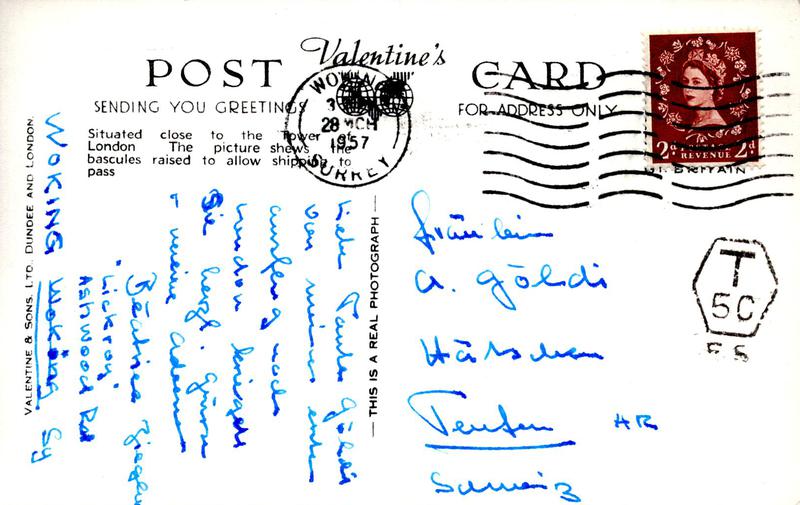 Valentine's
POST CARD
SENDING YOU GREETINGS
FOR ADDRESS ONLY
Situated close to the Tower of
London The picture shews the
bascules raised to allow shipping to
pass
WOKING
28 MCH
1957
SURREY
2d REVENUE 2d
GT. BRITAIN
T
50
F.S
Fräulein
A. Göldi
Teufen AR
Schweiz
THIS IS A REAL PHOTOGRAPH
Liebe Tante Göldi
von meinem ersten
Ausflug nach
London kriegen
Sie herzl. Grüsse
meine Adresse
Béatrice Ziegler
"Lickroy"
Ashwood Rd
WOKING Woking Sy
VALENTINE & SONS, LTD., DUNDEE AND LONDON.